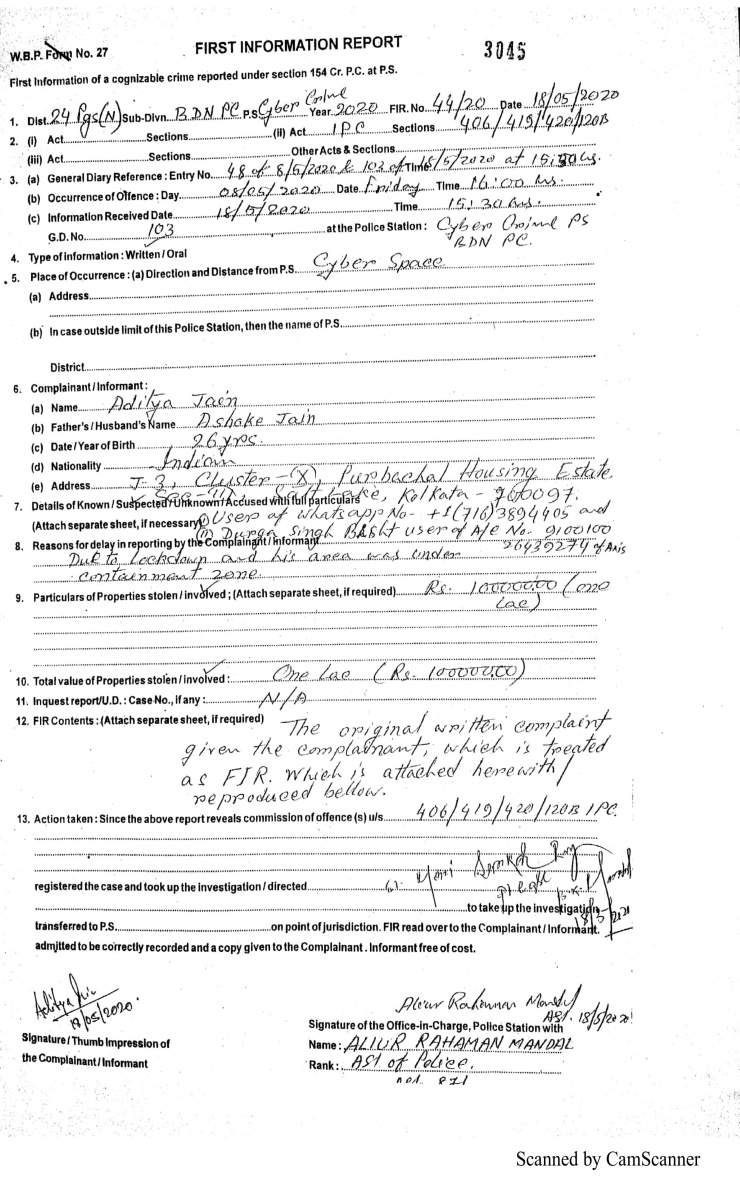 W.B.P. Form No. 27
FIRST INFORMATION REPORT
3045
First Information of a cognizable crime reported under section 154 Cr. P.C. at P.S.
1. Dist. 24 Pgs (N) Sub-Divn. BDN PC P.S. Cyber Crime Year 2020 FIR. No. 44/20 Date 18/05/2020
2. (i) Act Sections (ii) Act IPC Sections 406/419/420/120B
(iii) Act Sections Other Acts & Sections
3. (a) General Diary Reference : Entry No. 48 of 8/5/2020 & 103 of Time 18/5/2020 at 15:30 hrs.
(b) Occurrence of Offence : Day 08/05/2020 Date Friday Time 16:00 hrs.
(c) Information Received Date 18/5/2020 Time 15:30 hrs.
G.D. No. 103 at the Police Station : Cyber Crime PS
BDN PC.
4. Type of information : Written / Oral
5. Place of Occurrence : (a) Direction and Distance from P.S. Cyber Space
(a) Address
(b) In case outside limit of this Police Station, then the name of P.S.
District
6. Complainant / Informant :
(a) Name Aditya Jain
(b) Father's / Husband's Name Ashoke Jain
(c) Date / Year of Birth 26 yrs.
(d) Nationality Indian
(e) Address J-3, Cluster-(X), Purbachal Housing Estate
Lake, Kolkata - 700097.
7. Details of Known / Suspected / Unknown / Accused with full particulars
(Attach separate sheet, if necessary) (i) User of whatsapp No- +1(716)3894405 and
(ii) Durga Singh Bisht user of A/c No. 9100100
26439274 of Axis
8. Reasons for delay in reporting by the Complainant / Informant
Due to lockdown and his area was under
containment zone.
9. Particulars of Properties stolen / involved ; (Attach separate sheet, if required) Rs. 100000.00 (one
lac)
10. Total value of Properties stolen / involved : One lac (Rs. 100000.00)
11. Inquest report/U.D. : Case No., if any : N/A
12. FIR Contents : (Attach separate sheet, if required) The original written complaint
given the complainant, which is treated
as FIR. Which is attached herewith/
reproduced bellow.
13. Action taken : Since the above report reveals commission of offence (s) u/s 406/419/420/120B IPC.
registered the case and took up the investigation / directed
to take up the investigation
transferred to P.S. on point of jurisdiction. FIR read over to the Complainant / Informant.
admjtted to be correctly recorded and a copy given to the Complainant . Informant free of cost.
Aditya Jain
18/05/2020.
Signature / Thumb Impression of
the Complainant / Informant
Aliur Rahaman Mandal
ASI. 18/5/2020
Signature of the Office-in-Charge, Police Station with
Name : ALIUR RAHAMAN MANDAL
Rank : ASI of Police.
Scanned by CamScanner